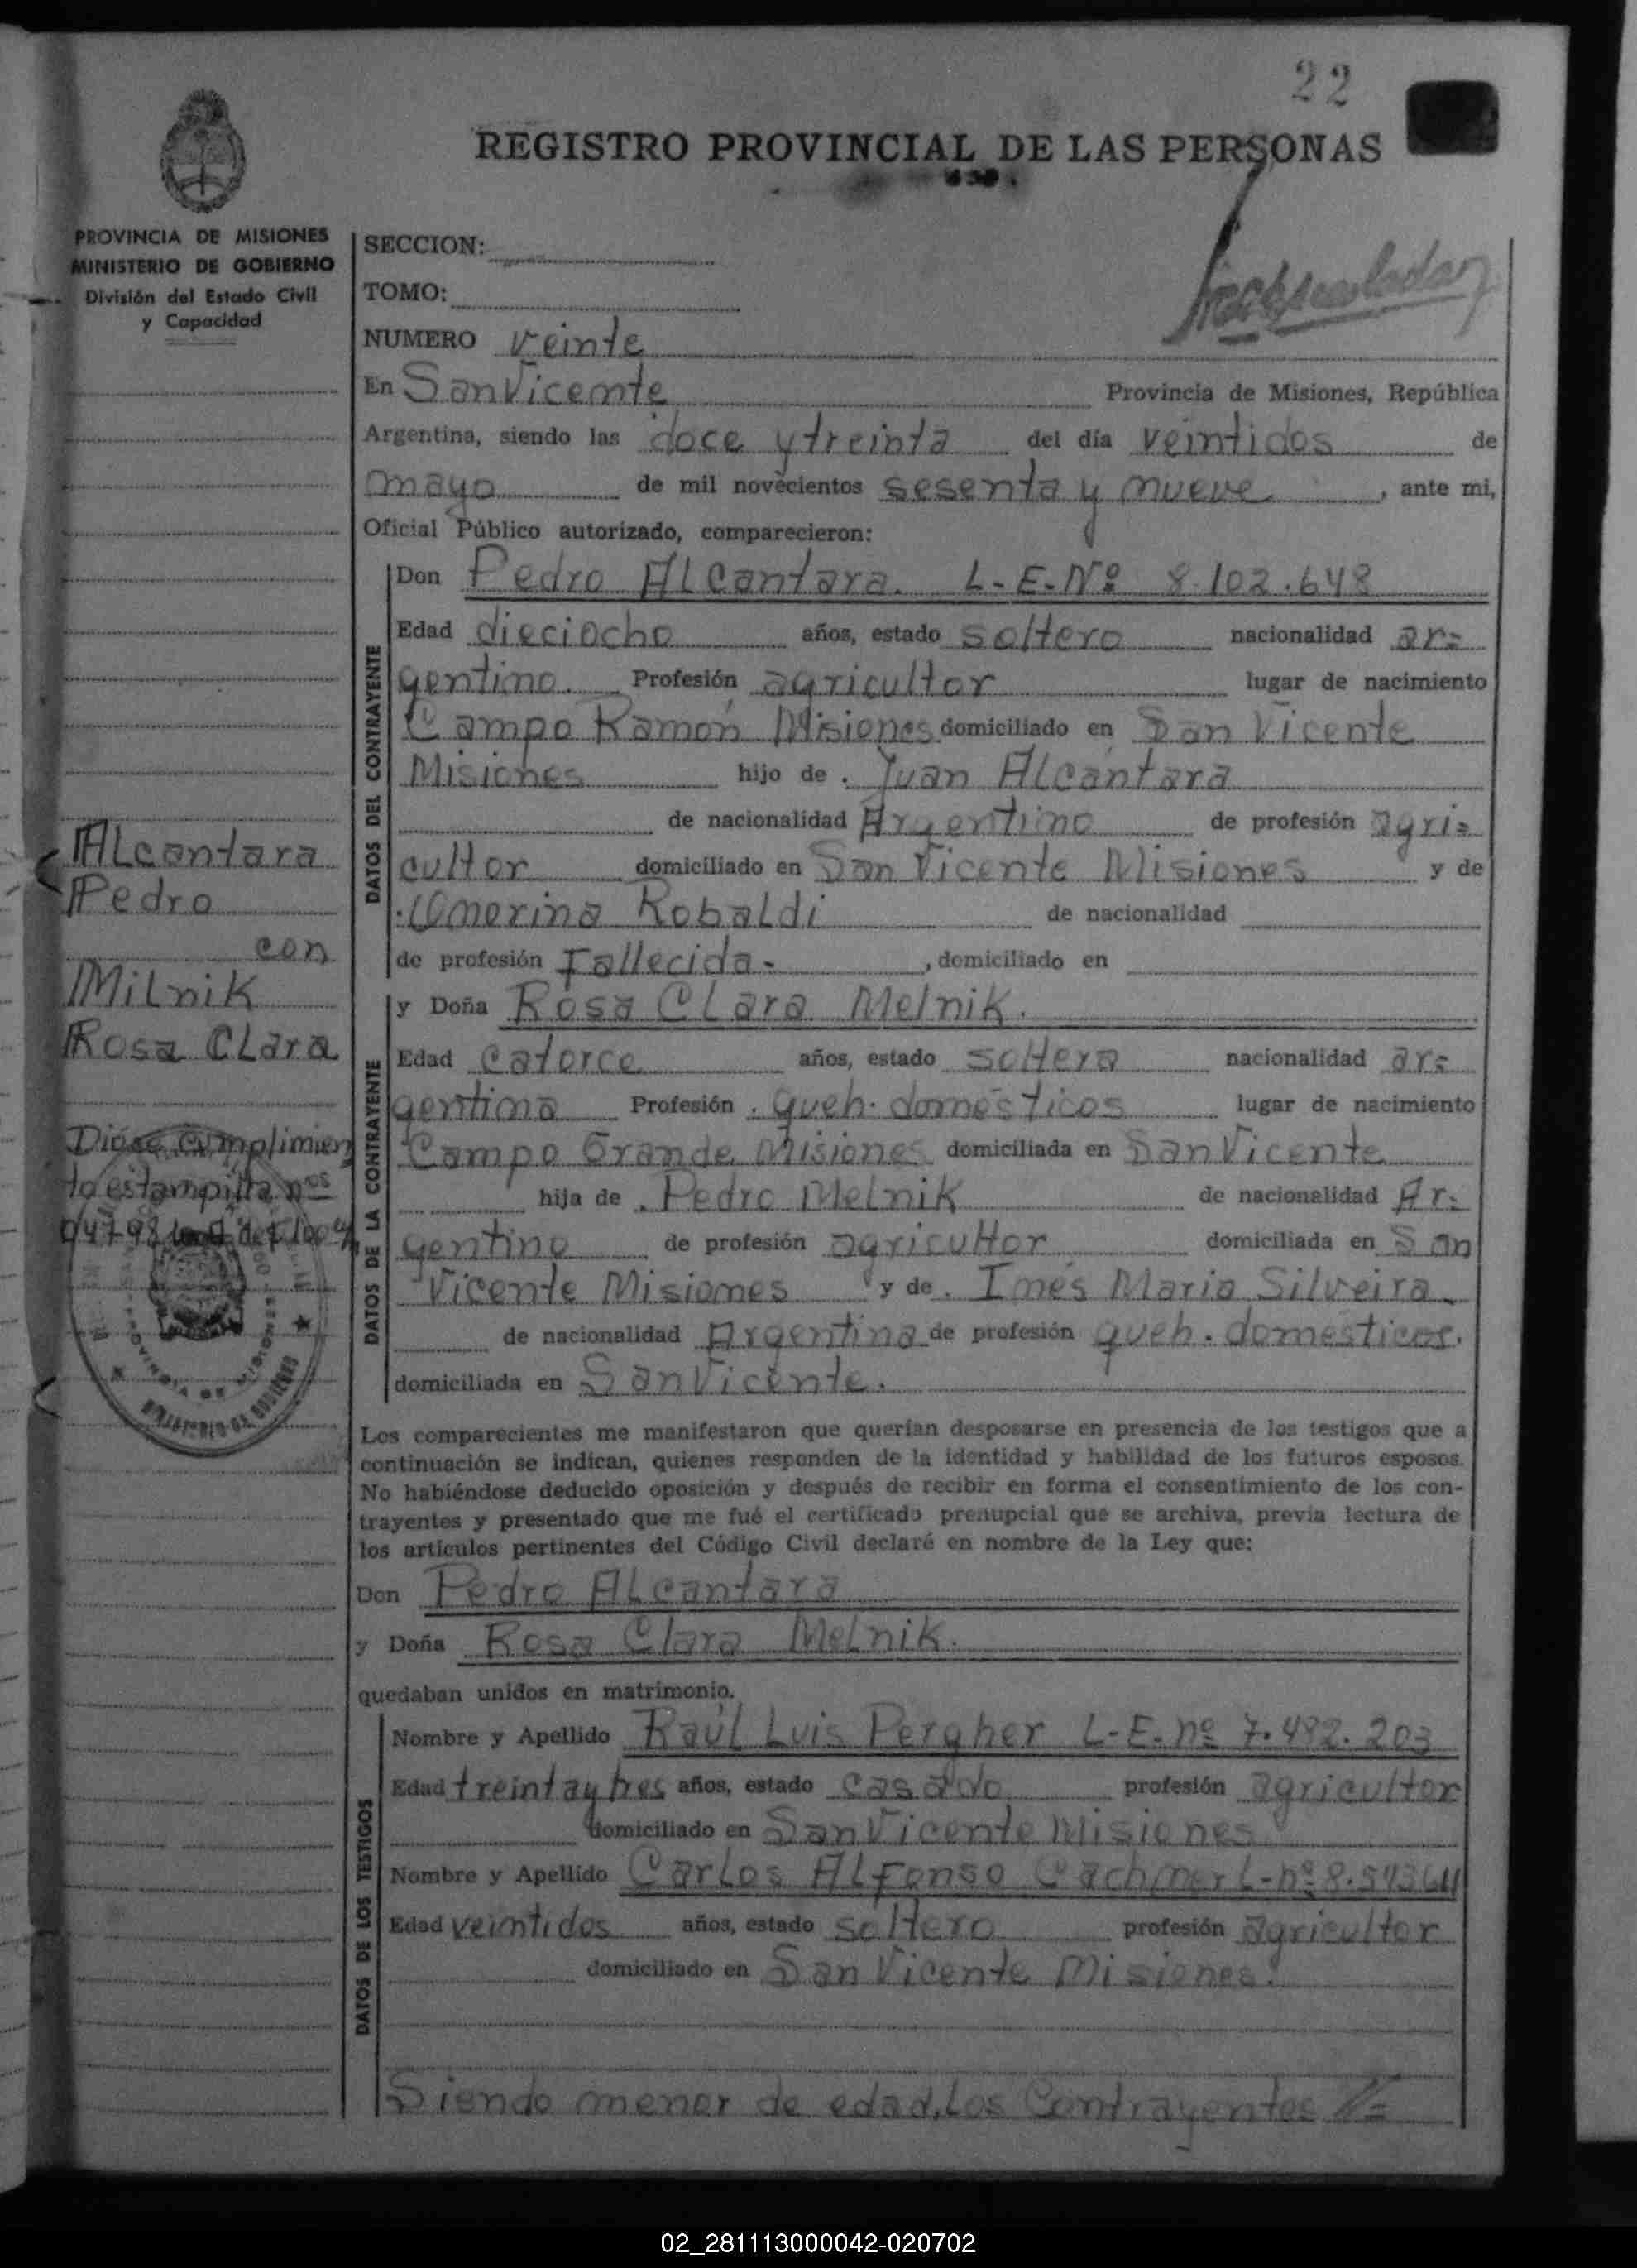 22
REGISTRO PROVINCIAL DE LAS PERSONAS
PROVINCIA DE MISIONES
MINISTERIO DE GOBIERNO
División del Estado Civil
y Capacidad
SECCION:
TOMO:
NUMERO veinte
En San Vicente Provincia de Misiones, República
Argentina, siendo las doce y treinta del día veintidos de
mayo de mil novecientos sesenta y nueve, ante mi,
Oficial Público autorizado, comparecieron:
DATOS DEL CONTRAYENTE
Don Pedro Alcantara. L-E-Nº 8.102.648
Edad dieciocho años, estado soltero nacionalidad ar=
gentino. Profesión agricultor lugar de nacimiento
Campo Ramón Misiones domiciliado en San Vicente
Misiones hijo de Juan Alcantara
de nacionalidad Argentino de profesión agri=
cultor domiciliado en San Vicente Misiones y de
Robaldi de nacionalidad
de profesión Fallecida. , domiciliado en
Alcantara
Pedro
con
Milnik
Rosa Clara
Diose cumplimien
to estampilla nos
DATOS DE LA CONTRAYENTE
y Doña Rosa Clara Melnik.
Edad catorce años, estado soltera nacionalidad ar=
gentina Profesión queh. domésticos lugar de nacimiento
Campo Grande Misiones domiciliada en San Vicente
hija de Pedro Melnik de nacionalidad Ar.
gentino de profesión agricultor domiciliada en San
Vicente Misiones y de Inés Maria Silveira
de nacionalidad Argentina de profesión queh. domésticos.
domiciliada en San Vicente.
Los comparecientes me manifestaron que querían desposarse en presencia de los testigos que a
continuación se indican, quienes responden de la identidad y habilidad de los futuros esposos.
No habiéndose deducido oposición y después de recibir en forma el consentimiento de los con-
trayentes y presentado que me fué el certificado prenupcial que se archiva, previa lectura de
los artículos pertinentes del Código Civil declaré en nombre de la Ley que:
Don Pedro Alcantara
y Doña Rosa Clara Melnik.
quedaban unidos en matrimonio.
DATOS DE LOS TESTIGOS
Nombre y Apellido Raúl Luis Pergher L-E-nº 7.482.203
Edad treinta y tres años, estado casado profesión agricultor
domiciliado en San Vicente Misiones
Nombre y Apellido Carlos Alfonso
Edad veintidos años, estado soltero profesión agricultor
domiciliado en San Vicente Misiones.
Siendo menor de edad, Los Contrayentes
02_281113000042-020702